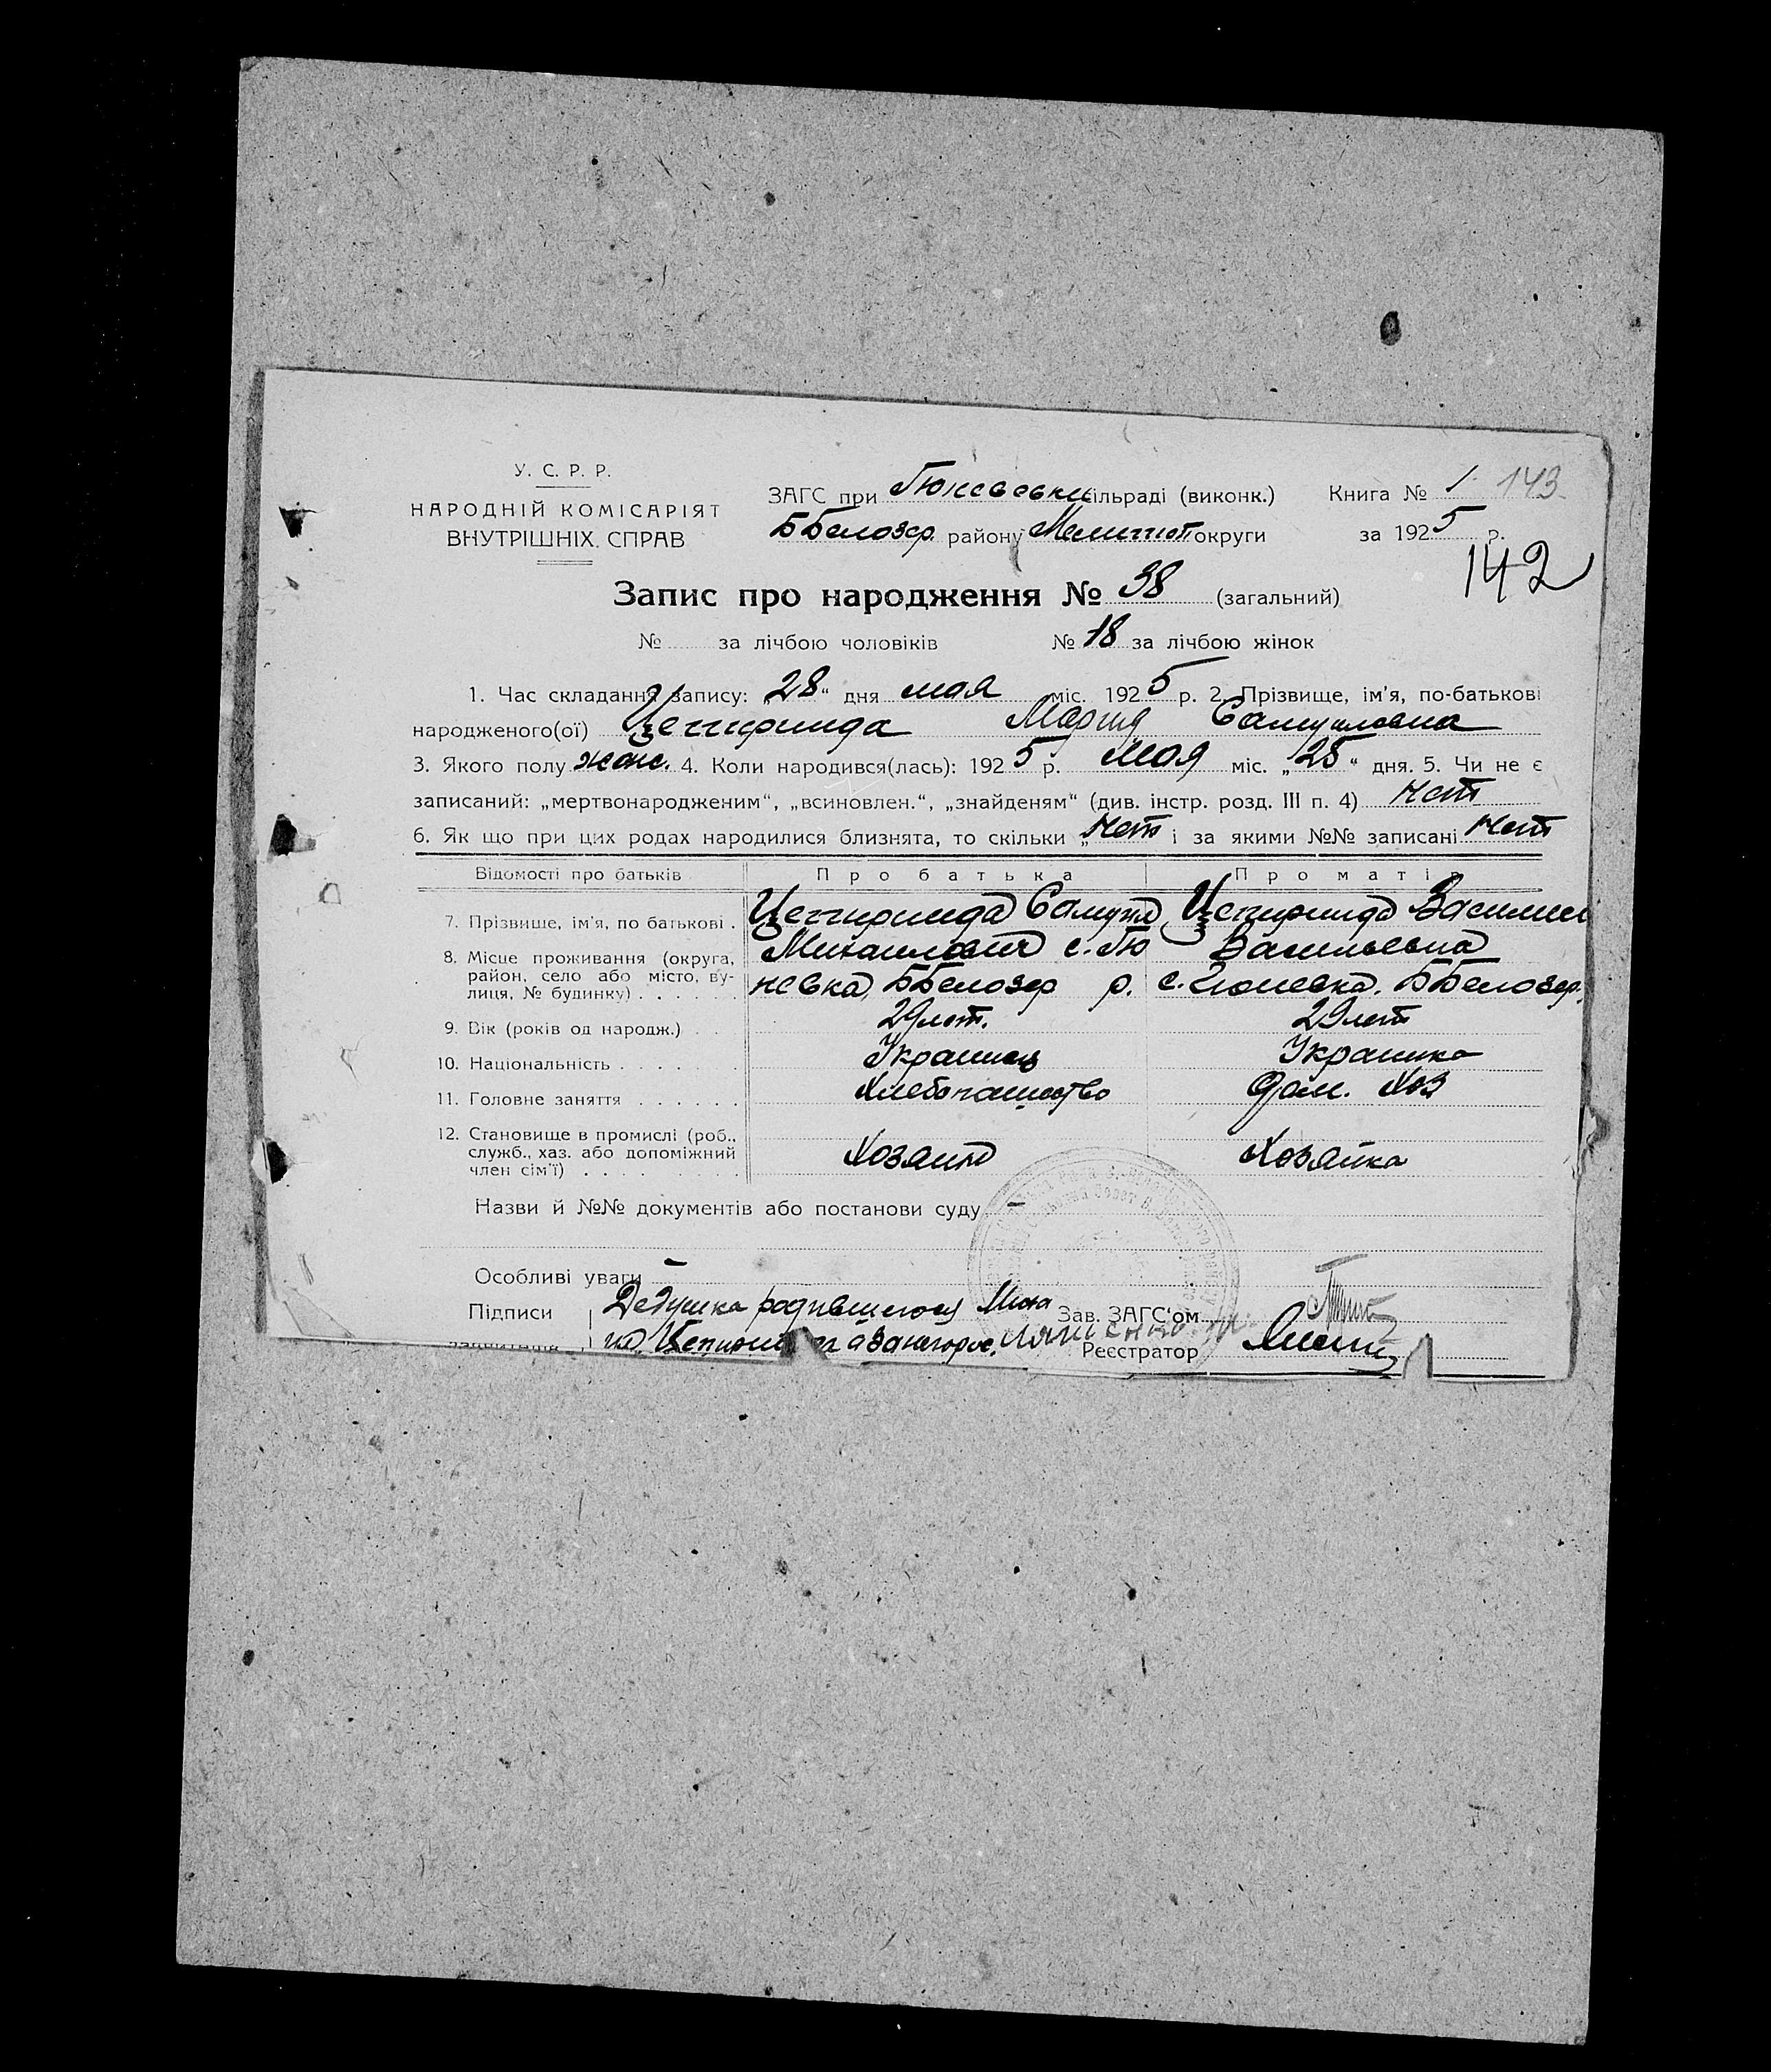 У. С. Р. Р.
НАРОДНІЙ КОМІСАРІЯТ
ВНУТРІШНІХ СПРАВ
ЗАГС при Гюневськи сільраді (виконк.)
ББелозер. району Мелитоп округи
Книга № 1. 143
за 1925 р.
142
Запис про народження № 38 (загальний)
№ за лічбою чоловіків № 18 за лічбою жінок
1. Час складання запису: „28“ дня мая міс. 1925 р. 2. Прізвище, ім'я, по-батькові
народженого(ої) Цепиринда Мария Самуиловна
3. Якого полу жен. 4. Коли народився(лась): 1925 р. мая міс. „25“ дня. 5. Чи не є
записаний: „мертвонародженим“, „всиновлен.“, „знайденям“ (див. інстр. розд. III п. 4) Нет
6. Як що при цих родах народилися близнята, то скільки „Нет і за якими №№ записані Нет
Відомості про батьків Про батька Про матір
7. Прізвище, ім'я, по батькові . Цепиринда Самуил Цепиринда
Михаилович с. Гю Васильевна
8. Місце проживання (округа, район, село або місто, вулиця, № будинку) . . . . . невка, ББелозер р. с. Гюневка. ББелозер.
9. Вік (років од народж.) . 29 лет. 29 лет
10. Національність . . . . . . Украинец Украинка
11. Головне заняття . . . . . . Хлебопашество Дом. Хоз
12. Становище в промислі (роб., служб., хаз. або допоміжний член сім'ї) . . . . . . . . Хозяин Хозяйка
Назви й №№ документів або постанови суду –
Особливі уваги –
Підписи Дедушка родившегося Миха Зав. ЗАГС'ом
Реєстратор